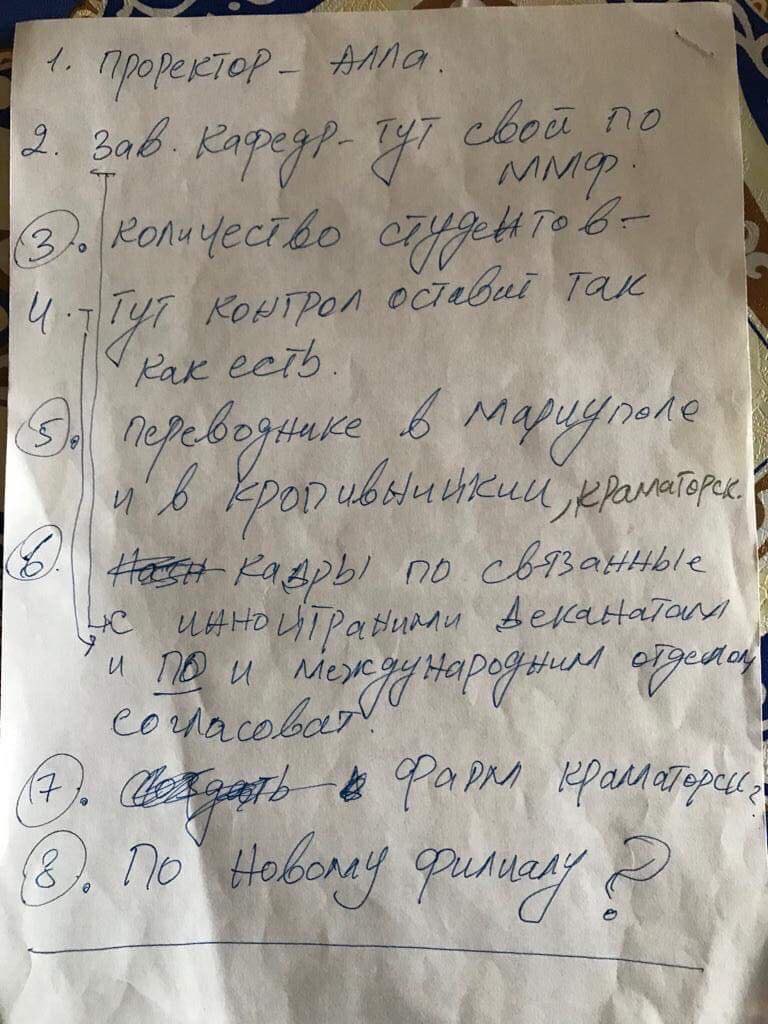 1. Проректор – Алла.
2. Зав. Кафедр – тут свой по
ММФ.
3. количество студентов –
4. тут контрол оставит так
как есть.
5. переводнике в Мариуполе
и в кропивницкии, краматорск.
6. кадры по связанные
с инностраними деканатам
и по и международним отделом
согласоват.
7. Создать в фарм краматорск?
8. По новому филиалу ?